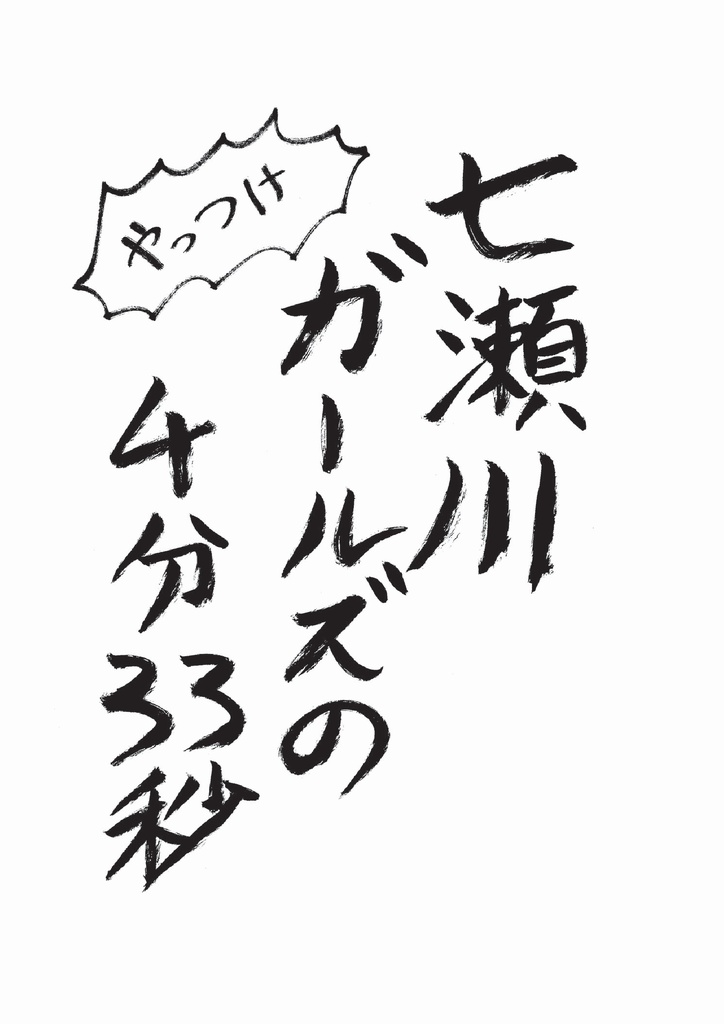 七瀬川
ガールズの
やっつけ
4分33秒